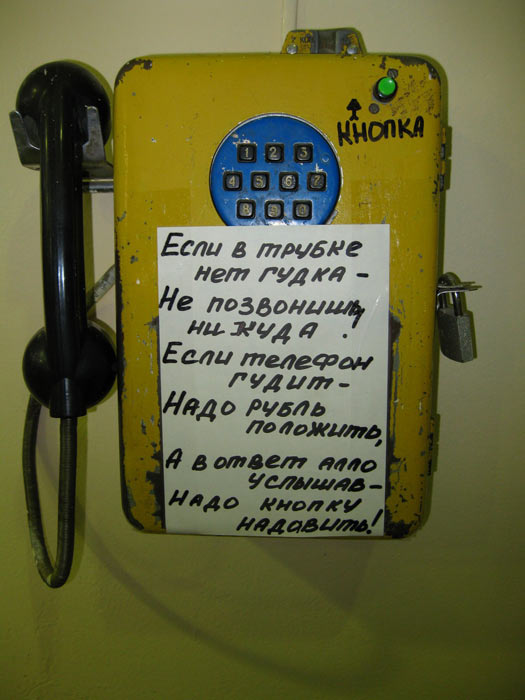 КНОПКА
1 2 3
4 5 6 7
8 9 0
Если в трубке
нет гудка –
Не позвонишь
ни куда !
Если телефон
гудит –
Надо рубль
положить,
А в ответ алло
услышав –
Надо кнопку
надавить!